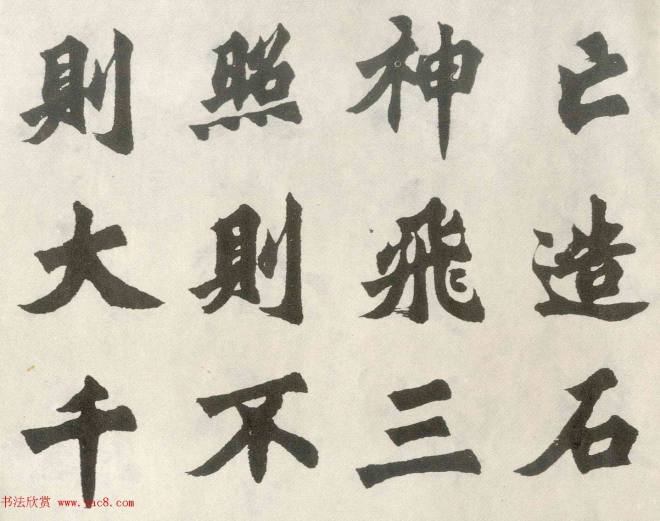 亡造石
神飛三
照則不
則大千
书法欣赏 www.yac8.com